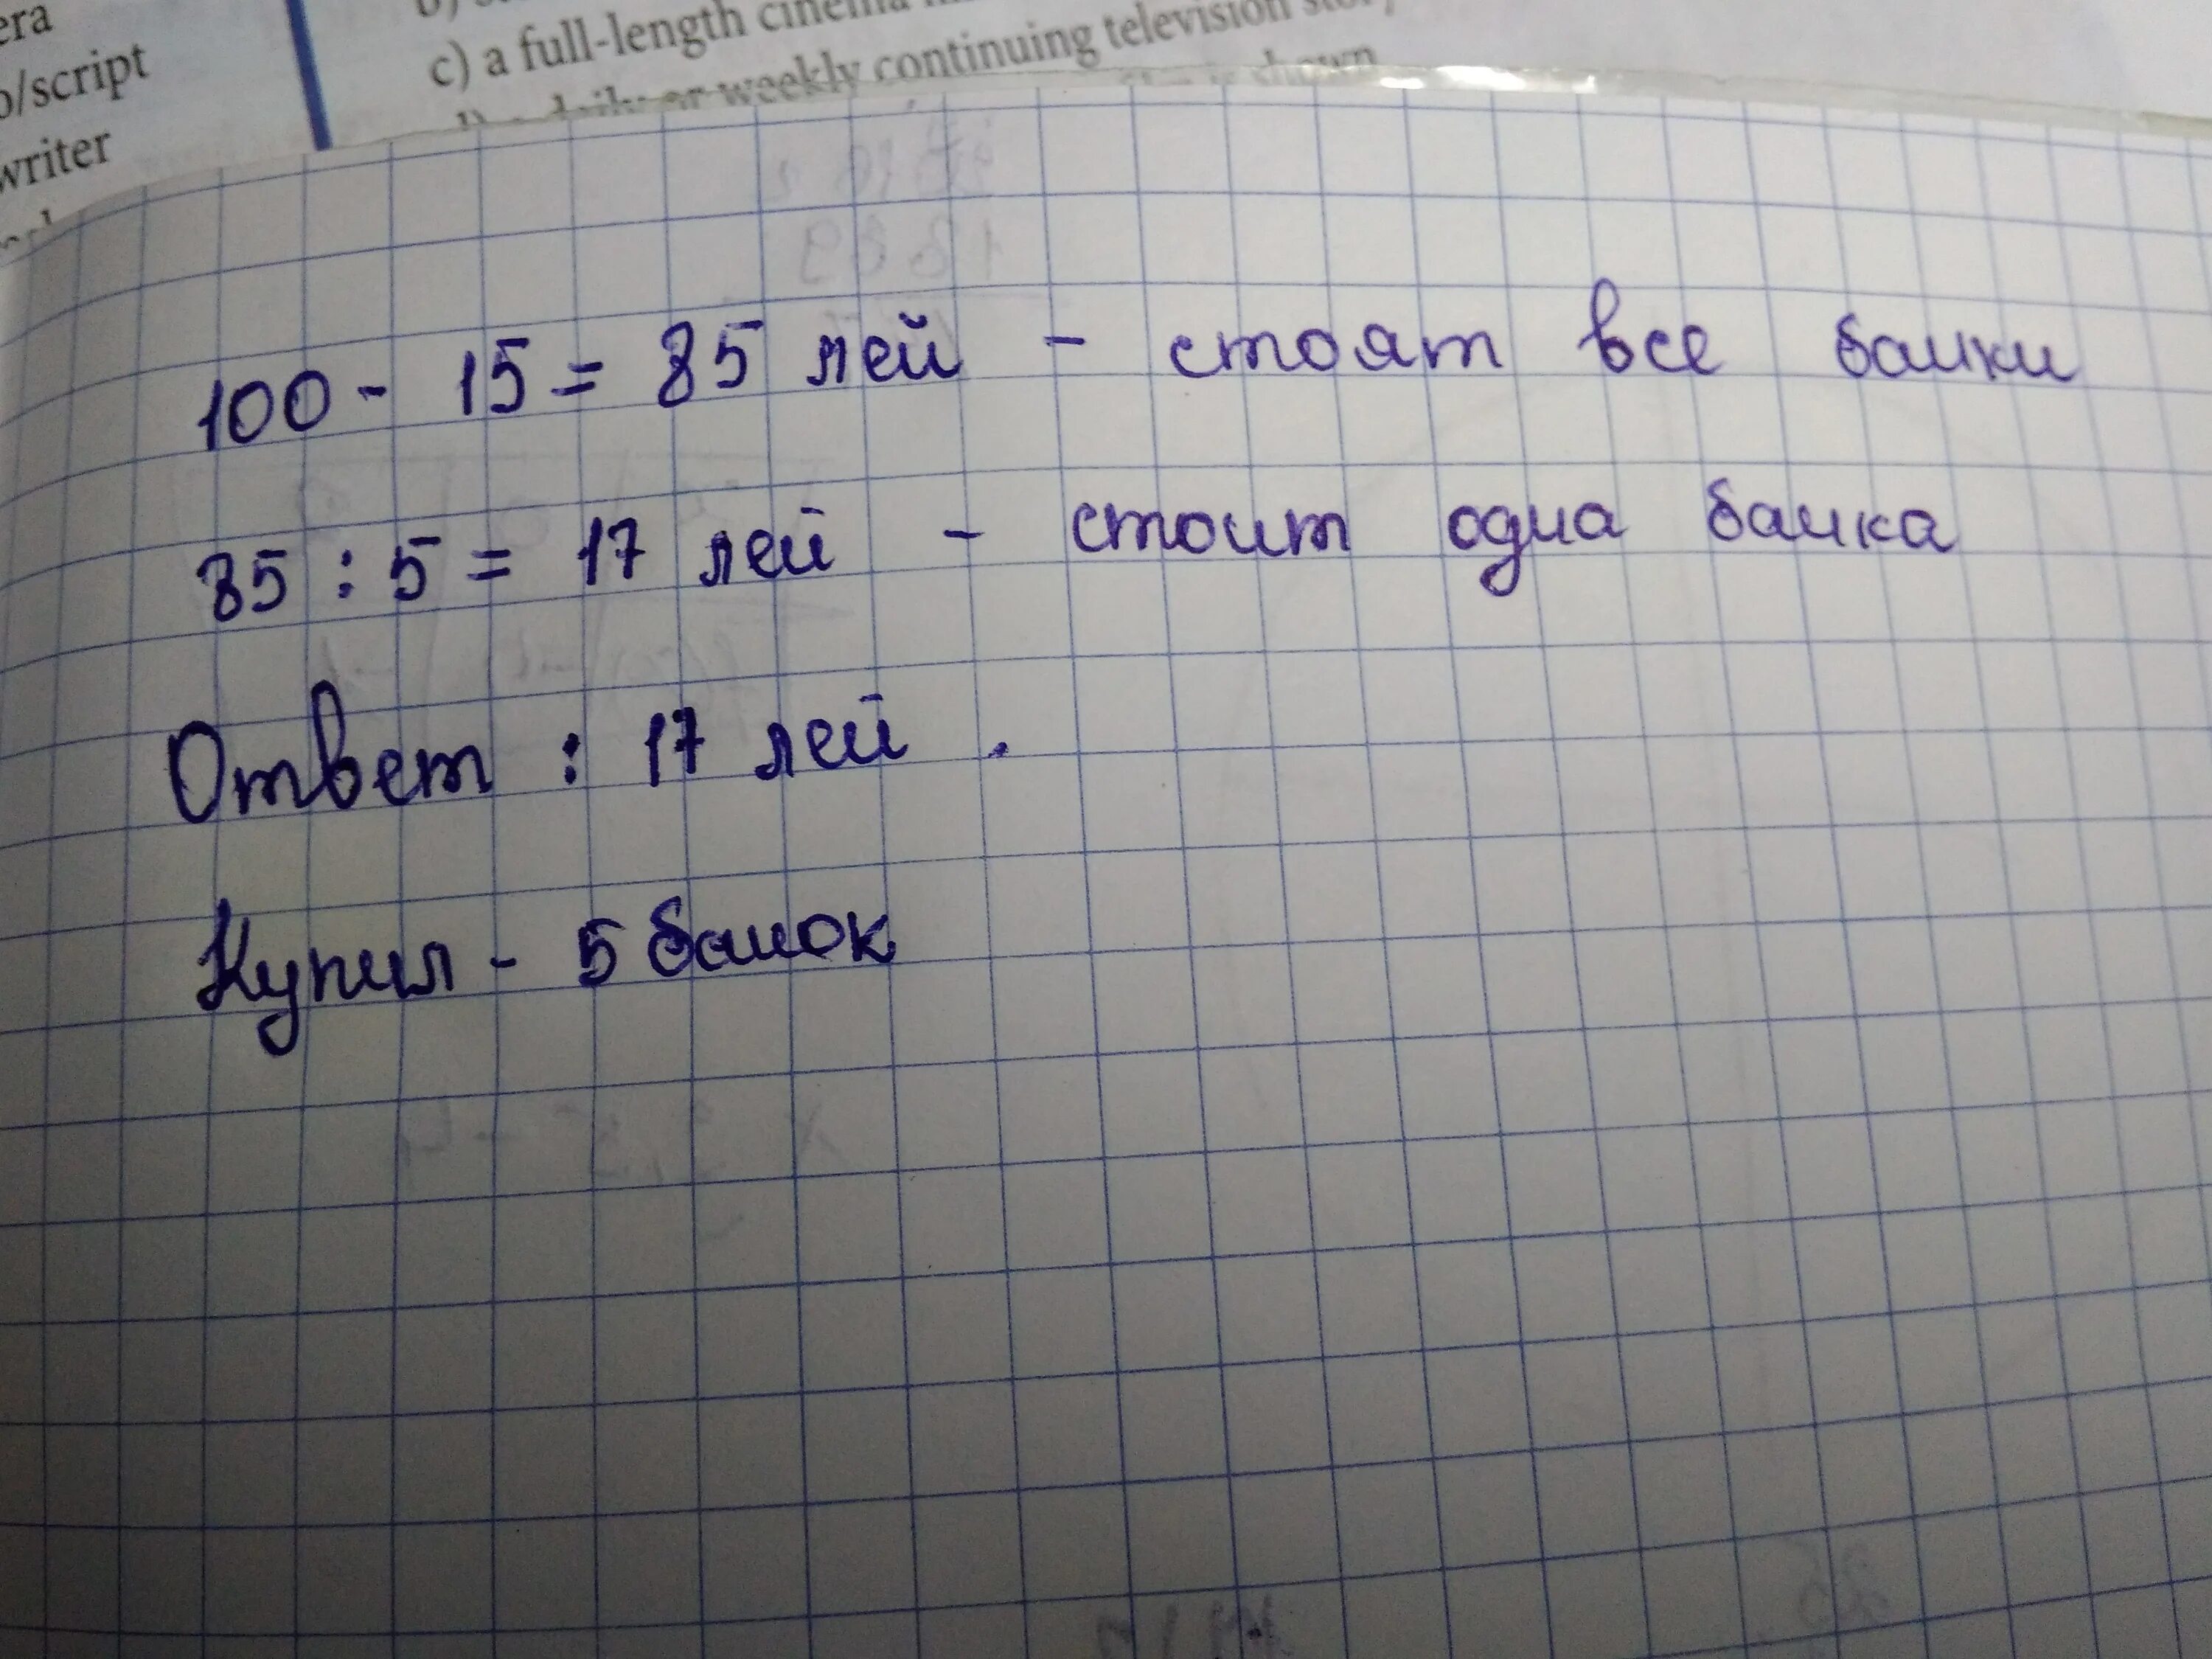 era
o/script
writer
c) a full-length cinema
or weekly continuing television story
shown
100 - 15 = 85 лей - стоят все банки
85 : 5 = 17 лей - стоит одна банка
Ответ : 17 лей .
Купил - 5 банок